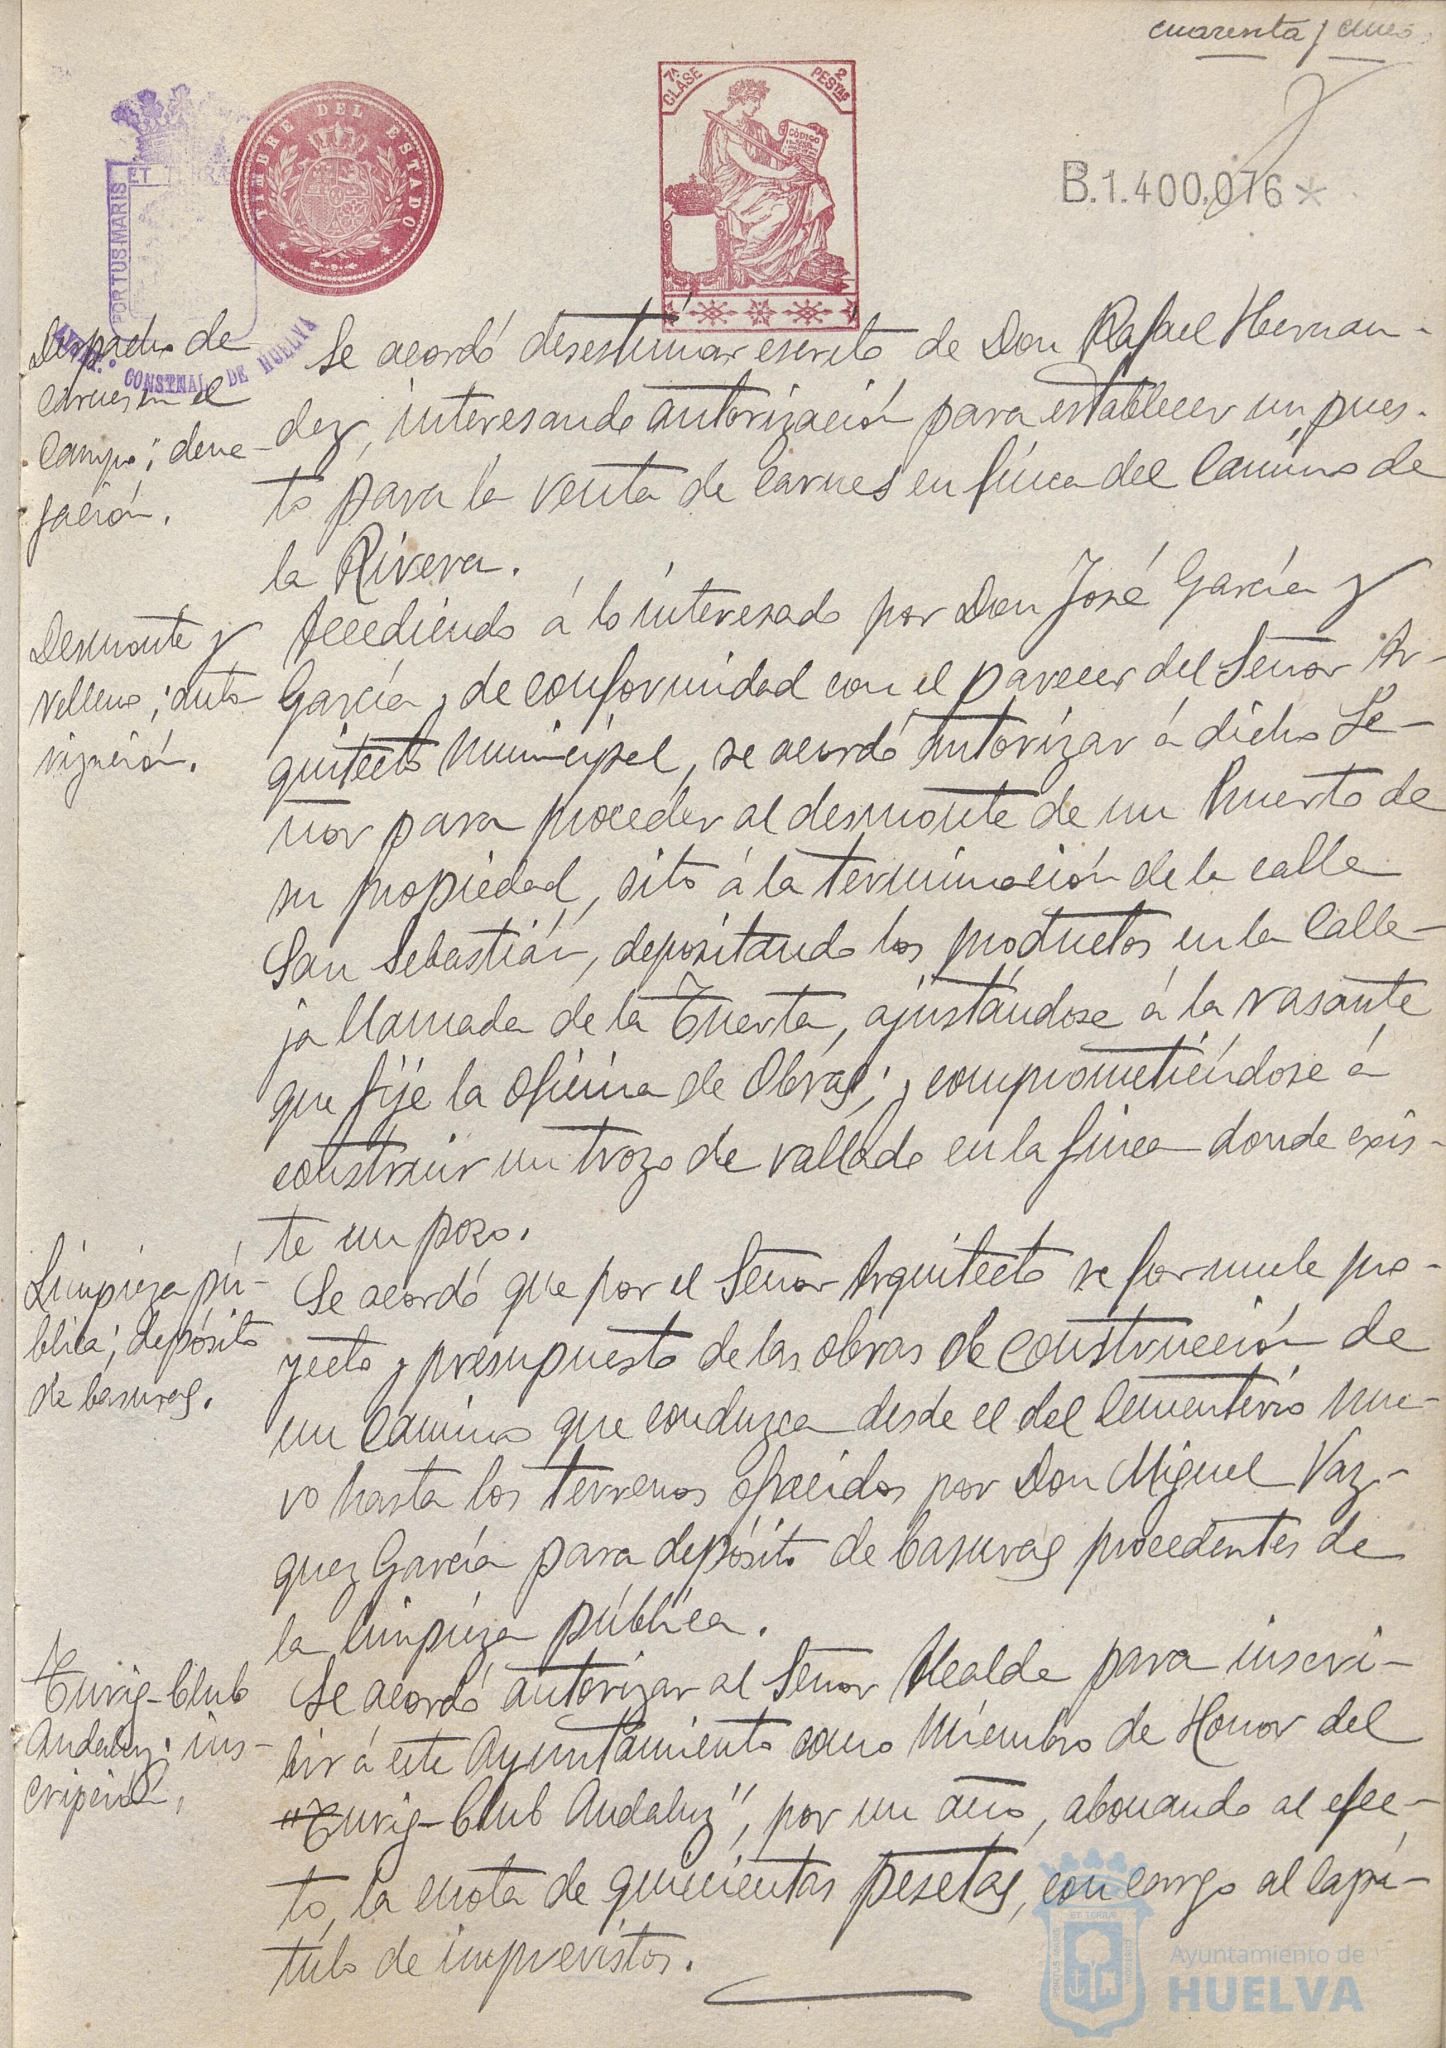 cuarenta y cinco
7ª CLASE
2 PESTAS
CÓDIGO
TIMBRE DEL ESTADO
B.1.400,076*
PORTUS MARIS
ET TERRÆ
CONSTNAL DE HUELVA
Despacho de
carnes en el
Campo; dene-
gación.
Se acordó desestimar escrito de Don Rafael Hernan-
dez, interesando autorización para establecer un pues-
to para la venta de carnes en finca del Camino de
la Rivera.
Desmonte y
relleno; auto-
rización.
Accediendo á lo interesado por Don José García y
García y de conformidad con el parecer del Señor Ar-
quitecto Municipal, se acordó autorizar á dicho Se-
ñor para proceder al desmonte de un Huerto de
su propiedad, sito á la terminación de la calle
San Sebastián, depositando los productos en la Calle-
ja llamada de la Tuerta, ajustándose á la rasante
que fije la oficina de Obras; y comprometiéndose á
construir un trozo de vallado en la finca donde exis-
te un pozo.
Limpieza pú-
blica; depósito
de basuras.
Se acordó que por el Señor Arquitecto se formule pro-
yecto y presupuesto de las obras de construcción de
un camino que conduzca desde el del Cementerio nue-
vo hasta los terrenos ofrecidos por Don Miguel Vaz-
quez García para depósito de basuras procedentes de
la limpieza pública.
Turig-Club
Andaluz; ins-
cripción.
Se acordó autorizar al Señor Alcalde para inscri-
bir á este Ayuntamiento como Miembro de Honor del
"Turig-Club Andaluz", por un año, abonando al efec-
to, la cuota de quinientas pesetas, con cargo al capí-
tulo de imprevistos.
Ayuntamiento de
HUELVA